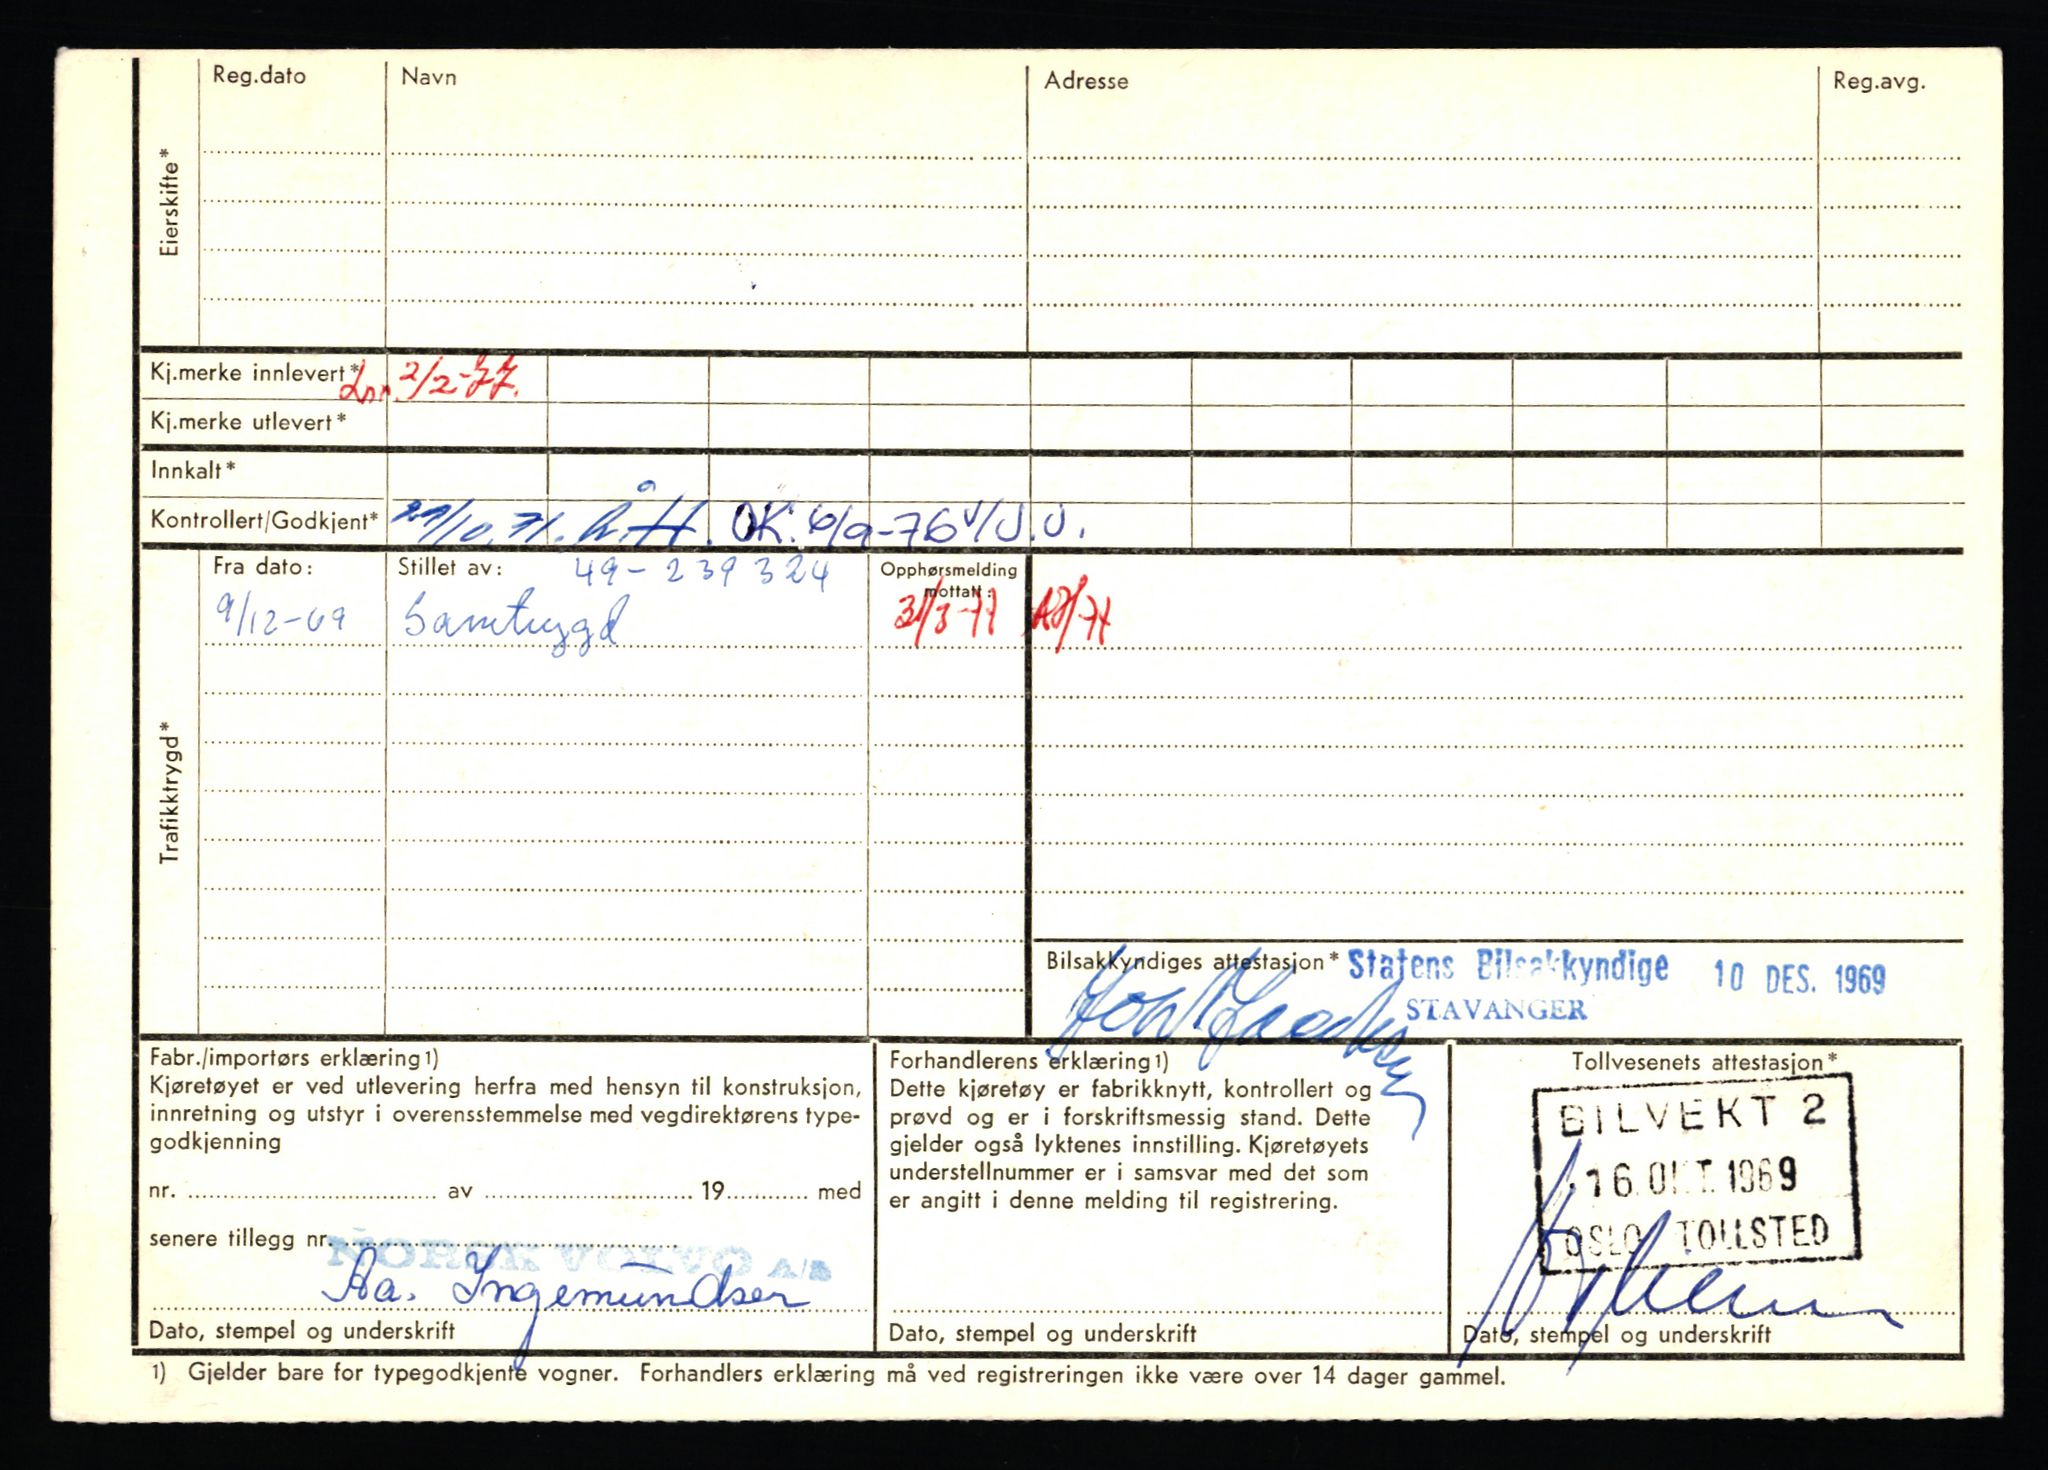 Eierskifte*
Reg.dato Navn Adresse Reg.avg.
Kj.merke innlevert* Inn. 2/2-77.
Kj.merke utlevert*
Innkalt*
Kontrollert/Godkjent* 29/10.71. Å.H. OK. 6/9-76 V/J.J.
Trafikktrygd*
Fra dato: Stillet av: 49-239324 Opphørsmelding mottatt:
9/12-69 Samtrygd 31/3-77
Bilsakkyndiges attestasjon* Statens Bilsakkyndige 10 DES. 1969
STAVANGER
Fabr./importørs erklæring1)
Kjøretøyet er ved utlevering herfra med hensyn til konstruksjon,
innretning og utstyr i overensstemmelse med vegdirektørens type-
godkjenning
nr. av 19 med
senere tillegg nr.
NORSK VOLVO A/S
Aa. Ingemundsen
Dato, stempel og underskrift
Forhandlerens erklæring1)
Dette kjøretøy er fabrikknytt, kontrollert og
prøvd og er i forskriftsmessig stand. Dette
gjelder også lyktenes innstilling. Kjøretøyets
understellnummer er i samsvar med det som
er angitt i denne melding til registrering.
Dato, stempel og underskrift
Tollvesenets attestasjon*
BILVEKT 2
16 OKT. 1969
OSLO TOLLSTED
Dato, stempel og underskrift
1) Gjelder bare for typegodkjente vogner. Forhandlers erklæring må ved registreringen ikke være over 14 dager gammel.